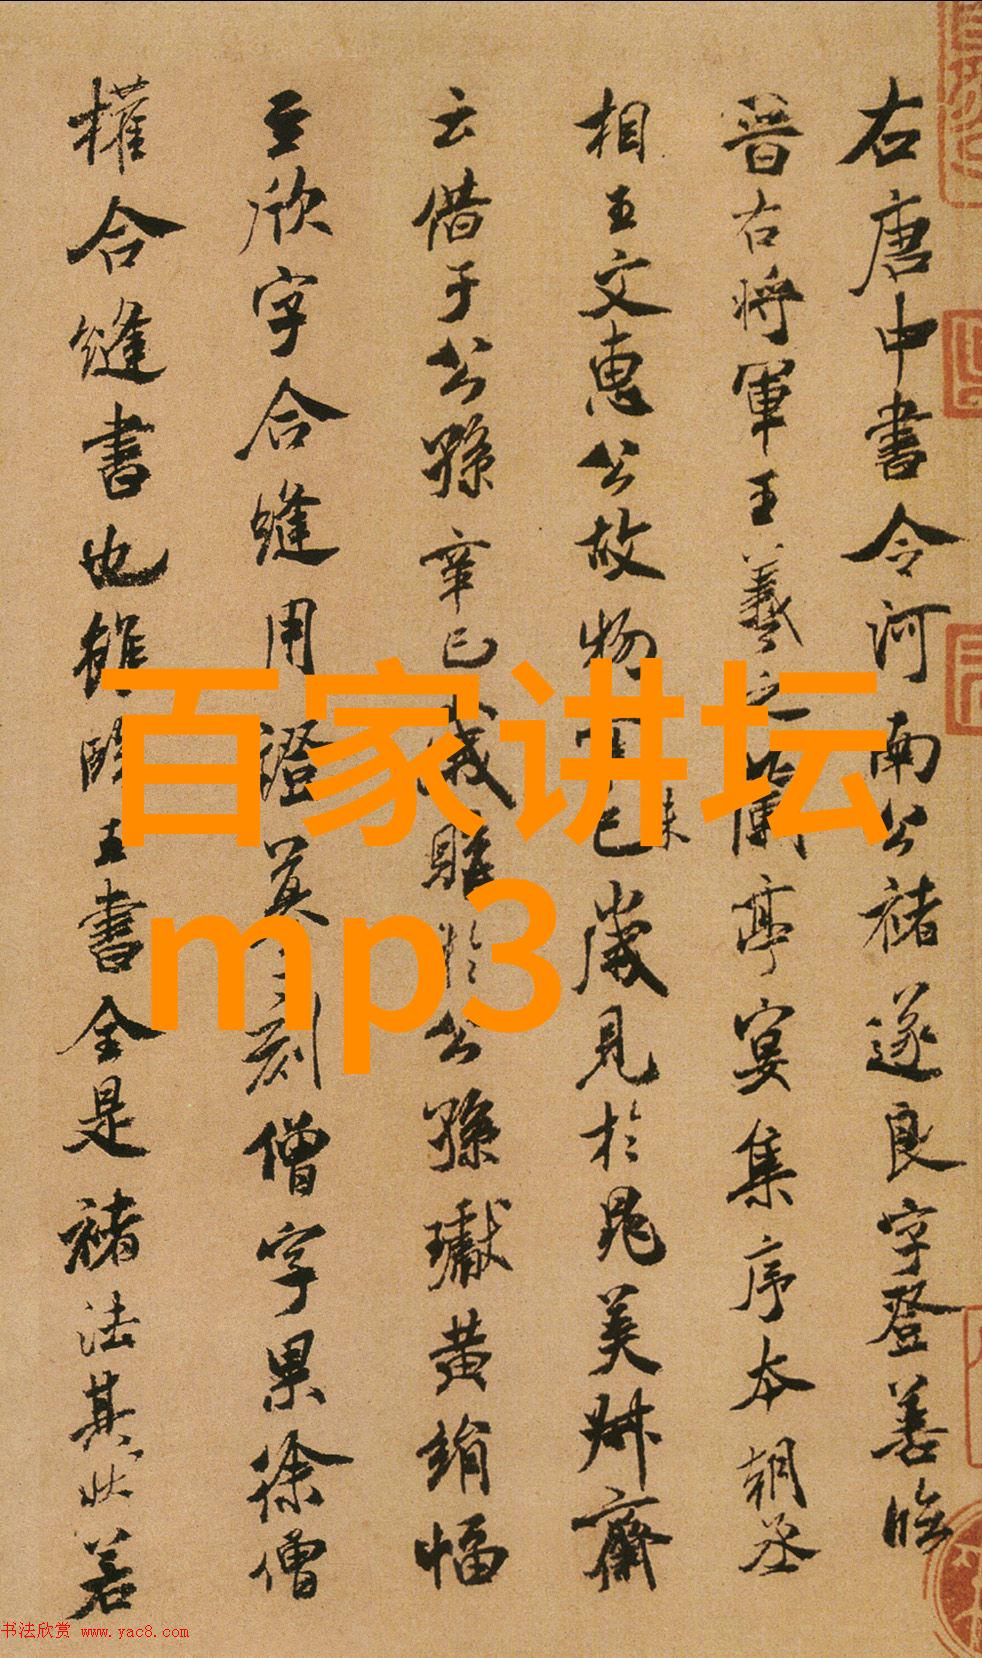 右唐中書令河南公褚遂良字登善臨
晉右將軍王羲之蘭亭宴集序本朝丞
相王文惠公故物巳歲見於晁美叔齋
云借于公孫辛巳歲購於公孫瓛黃絹幅
至欣字合縫用證摹刻僧字果徐僧
權合縫書也雖臨王書全是褚法其狀若
百家讲坛
mp3
书法欣赏 www.yac8.com